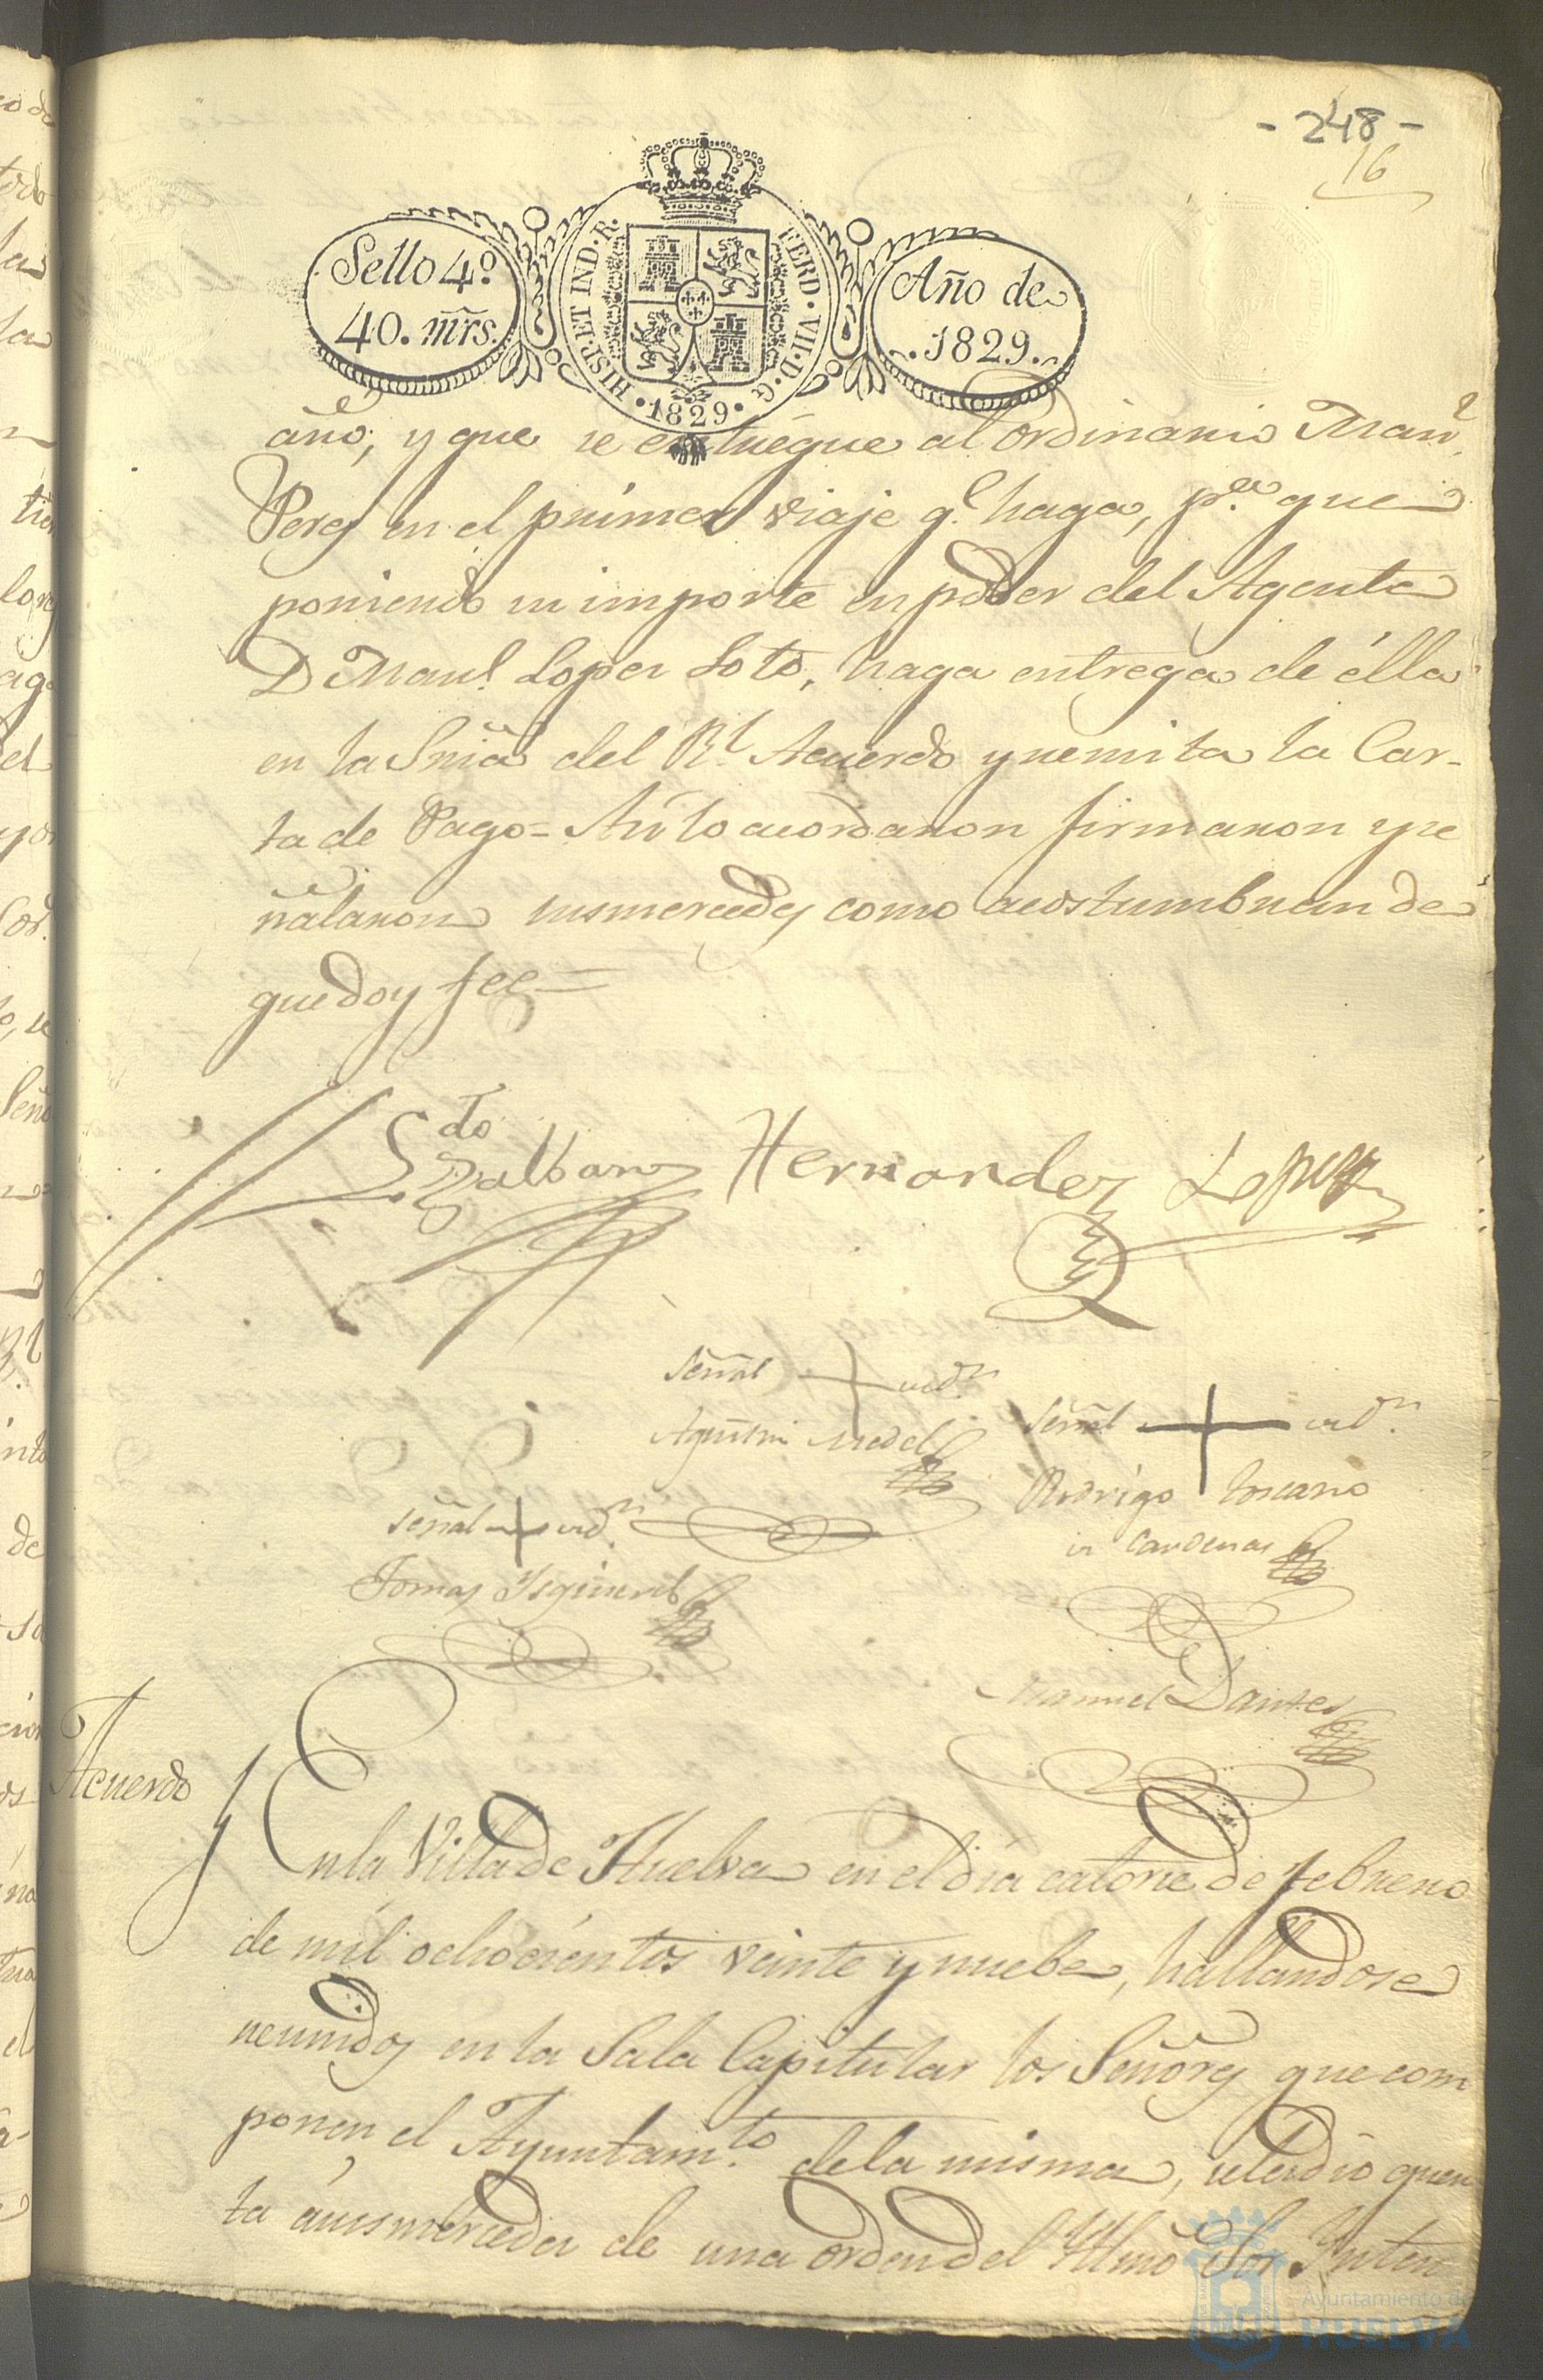 - 248 -
16
Sello 4.º
40. mr̃s.
HISP. ET IND. R.
FERD. VII. D. G.
1829
Año de
1829.
año, y que se entregue al Ordinario Man.l
Perez en el primer viaje q.e haga, p.a que
poniendo su importe en poder del Agente
D Man.l Lopez Soto, haga entrega de élla
en la Sriã del R.l Acuerdo y remita la Car-
ta de Pago = Asi lo acordaron firmaron y se
ñalaron susmercedes como acostumbran de
que doy fee =
L.do
Zalban Hernandez Lopez
Señal + del S.r
Agustin Medel
Señal + del S.r
Rodrigo Toscano
de Cardenas
Señal + del S.r
Tomas Ysquierdo
Manuel Dantes
Acuerdo
En la Villa de Huelva en el dia catorse de febrero
de mil ochocientos veinte y nuebe, hallandose
reunidos en la Sala Capitular los Señores que com
ponen el Ayuntam.to de la misma, se le dio quen
ta á susmercedes de una orden del Yllmõ Sor Ynten
Ayuntamiento de
HUELVA